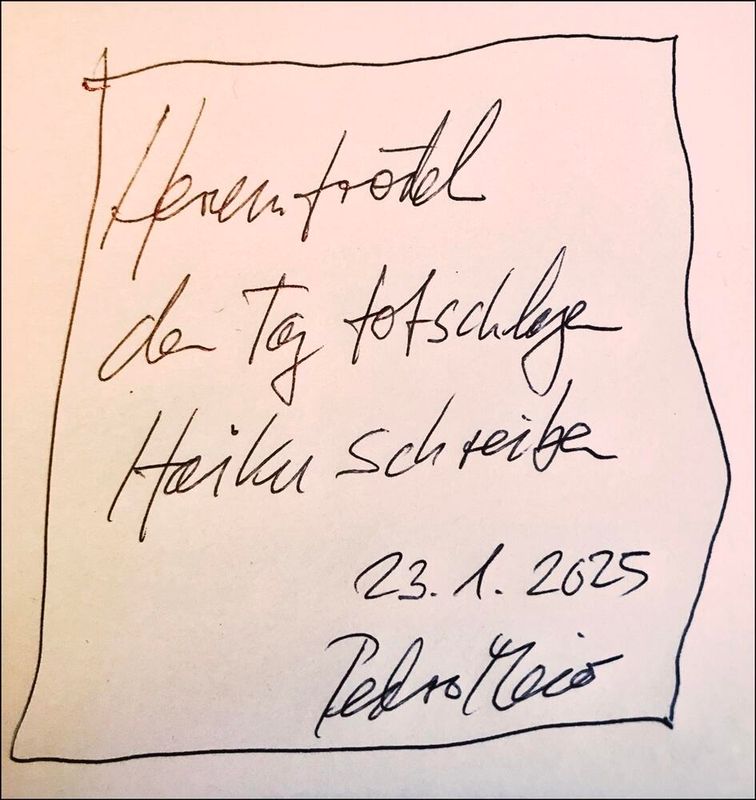 Herumtrödeln
den Tag totschlagen
Haiku schreiben
23.1.2025
Pedro Meier